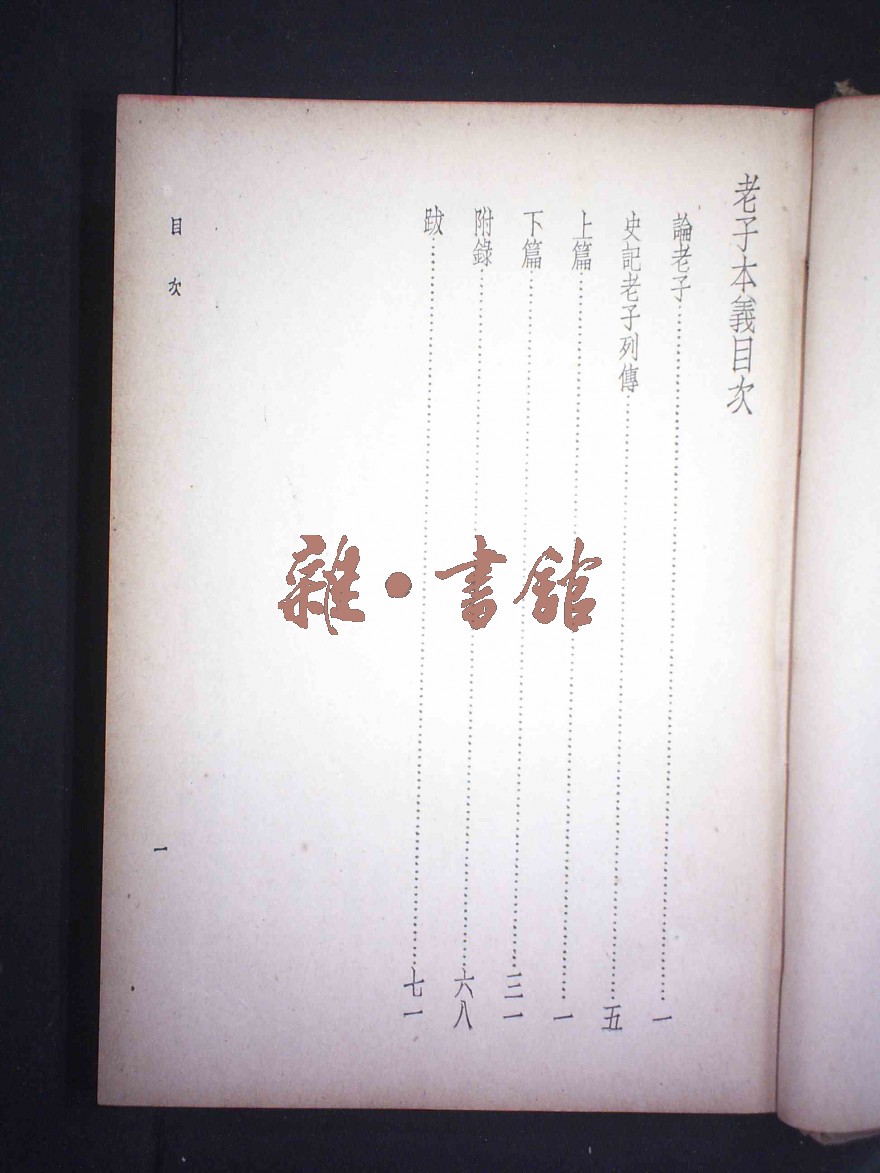 老子本義目次
論老子……一
史記老子列傳……五
上篇……一
下篇……三一
附錄……六八
跋……七一
目次
一
雜·書館